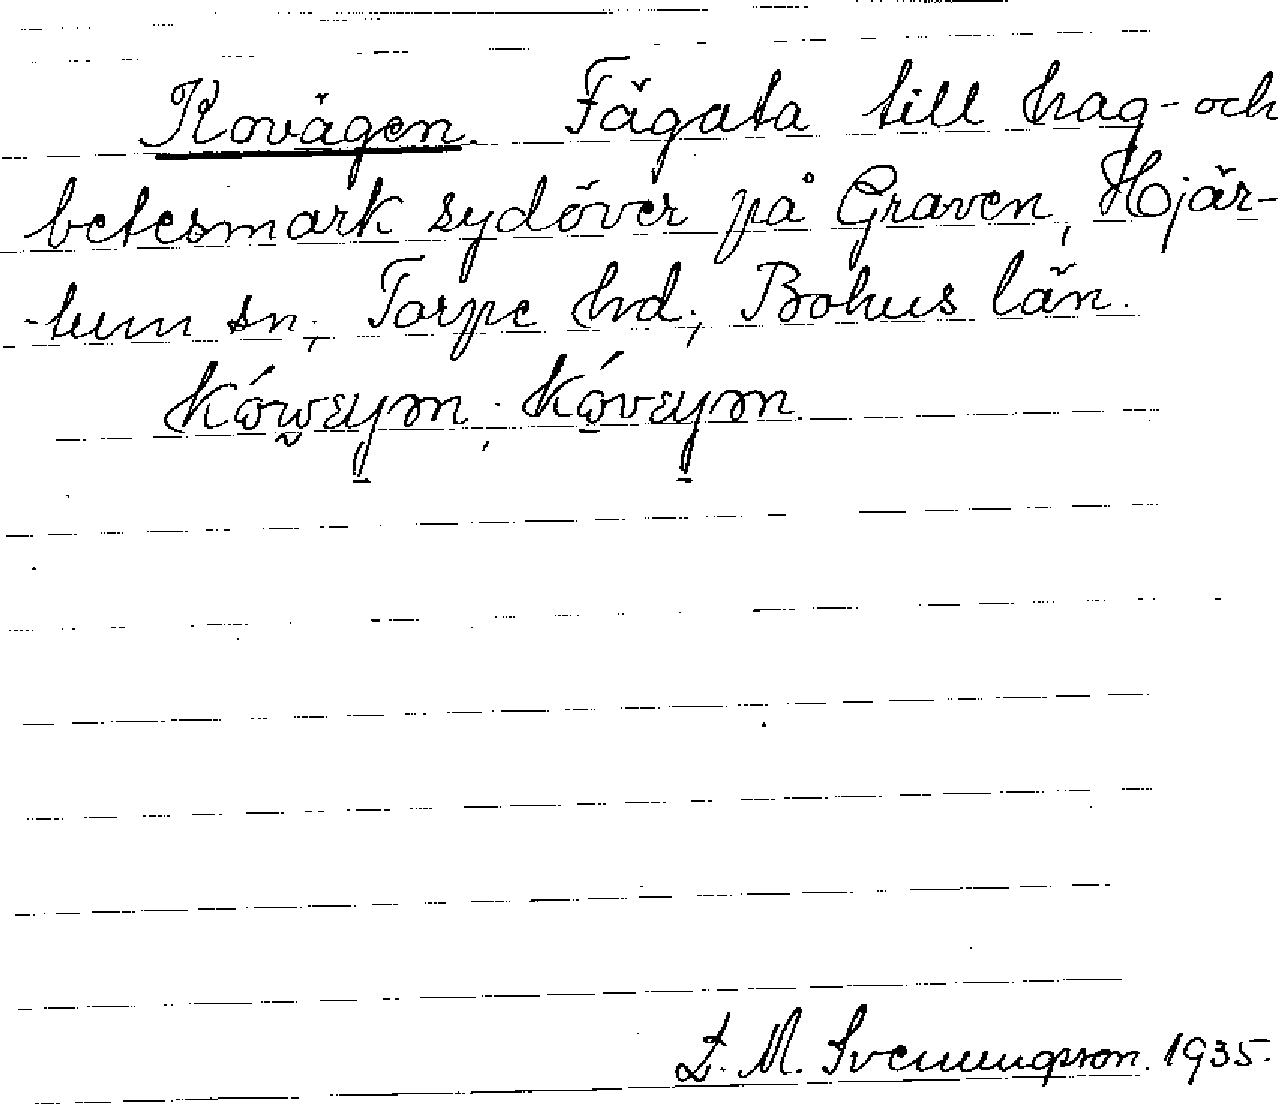 Kovägen. Fägata till hag- och
betesmark sydöver på Graven, Hjär-
-tum sn; Torpe hd; Bohus län.
L. M. Svenungsson. 1935.